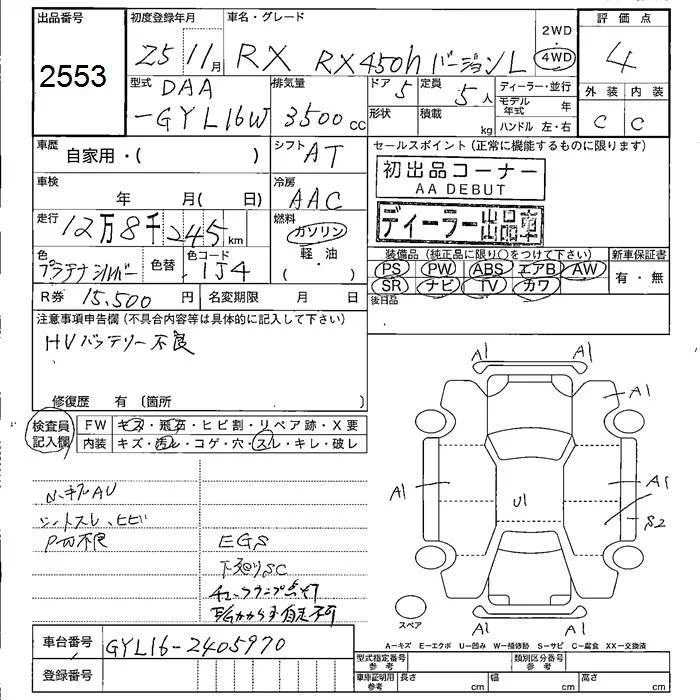 出品番号
2553
初度登録年月
25 11月
車名・グレード
RX RX450h バージョンL
2WD
4WD
評価点
4
外装 内装
C C
型式
DAA
-GYL16W
排気量
3500cc
ドア
5
定員
5人
形状
積載
kg
ディーラー・並行
モデル年式 年
ハンドル 左・右
車歴
自家用・( )
シフト
AT
セールスポイント(正常に機能するものに限ります)
初出品コーナー
AA DEBUT
ディーラー出品車
車検
年 月( 日)
冷房
AAC
走行
12万8千245km
燃料
ガソリン
軽・油
( )
色
プラチナシルバー
色替
色コード
1J4
装備品(純正品に限り○をつけて下さい)
PS PW ABS エアB AW
SR ナビ TV カワ
新車保証書
有・無
R券 15,500円
名変期限 月 日
後日品
注意事項申告欄(不具合内容等は具体的に記入して下さい)
HVバッテリー不良
修復歴 有(箇所
検査員記入欄
FW キズ・飛石・ヒビ割・リペア跡・X要
内装 キズ・汚レ・コゲ・穴・スレ・キレ・破レ
シートスレ、ヒビ
PW不良
EGS
下廻りSC
チェックランプ点灯
A1 A1
A1
A1 U1 A1
S2
A1 A1
スペア
A=キズ E=エクボ U=凹み W=補修跡 S=サビ C=腐食 XX=交換済
車台番号
GYL16-2405970
登録番号
型式指定番号
参考
類別区分番号
参考
車庫証明用
参考
長さ cm
幅 cm
高さ cm